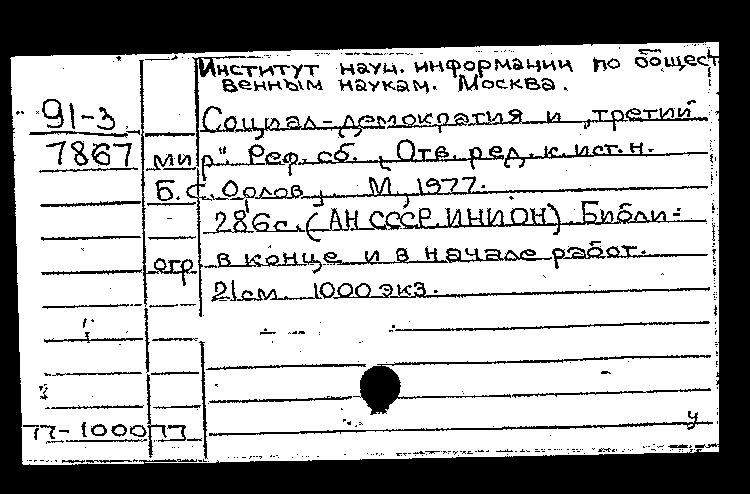 Институт науч. информации по общест
венным наукам. Москва.
91-3
Социал-демократия и „третий
7867
мир". Реф. сб. Отв. ред. к. ист. н.
Б.С. Орлов, М., 1977.
286с. (АН СССР. ИНИОН). Библи=
огр. в конце и в начале работ.
21см. 1000 экз.
77-100077
у